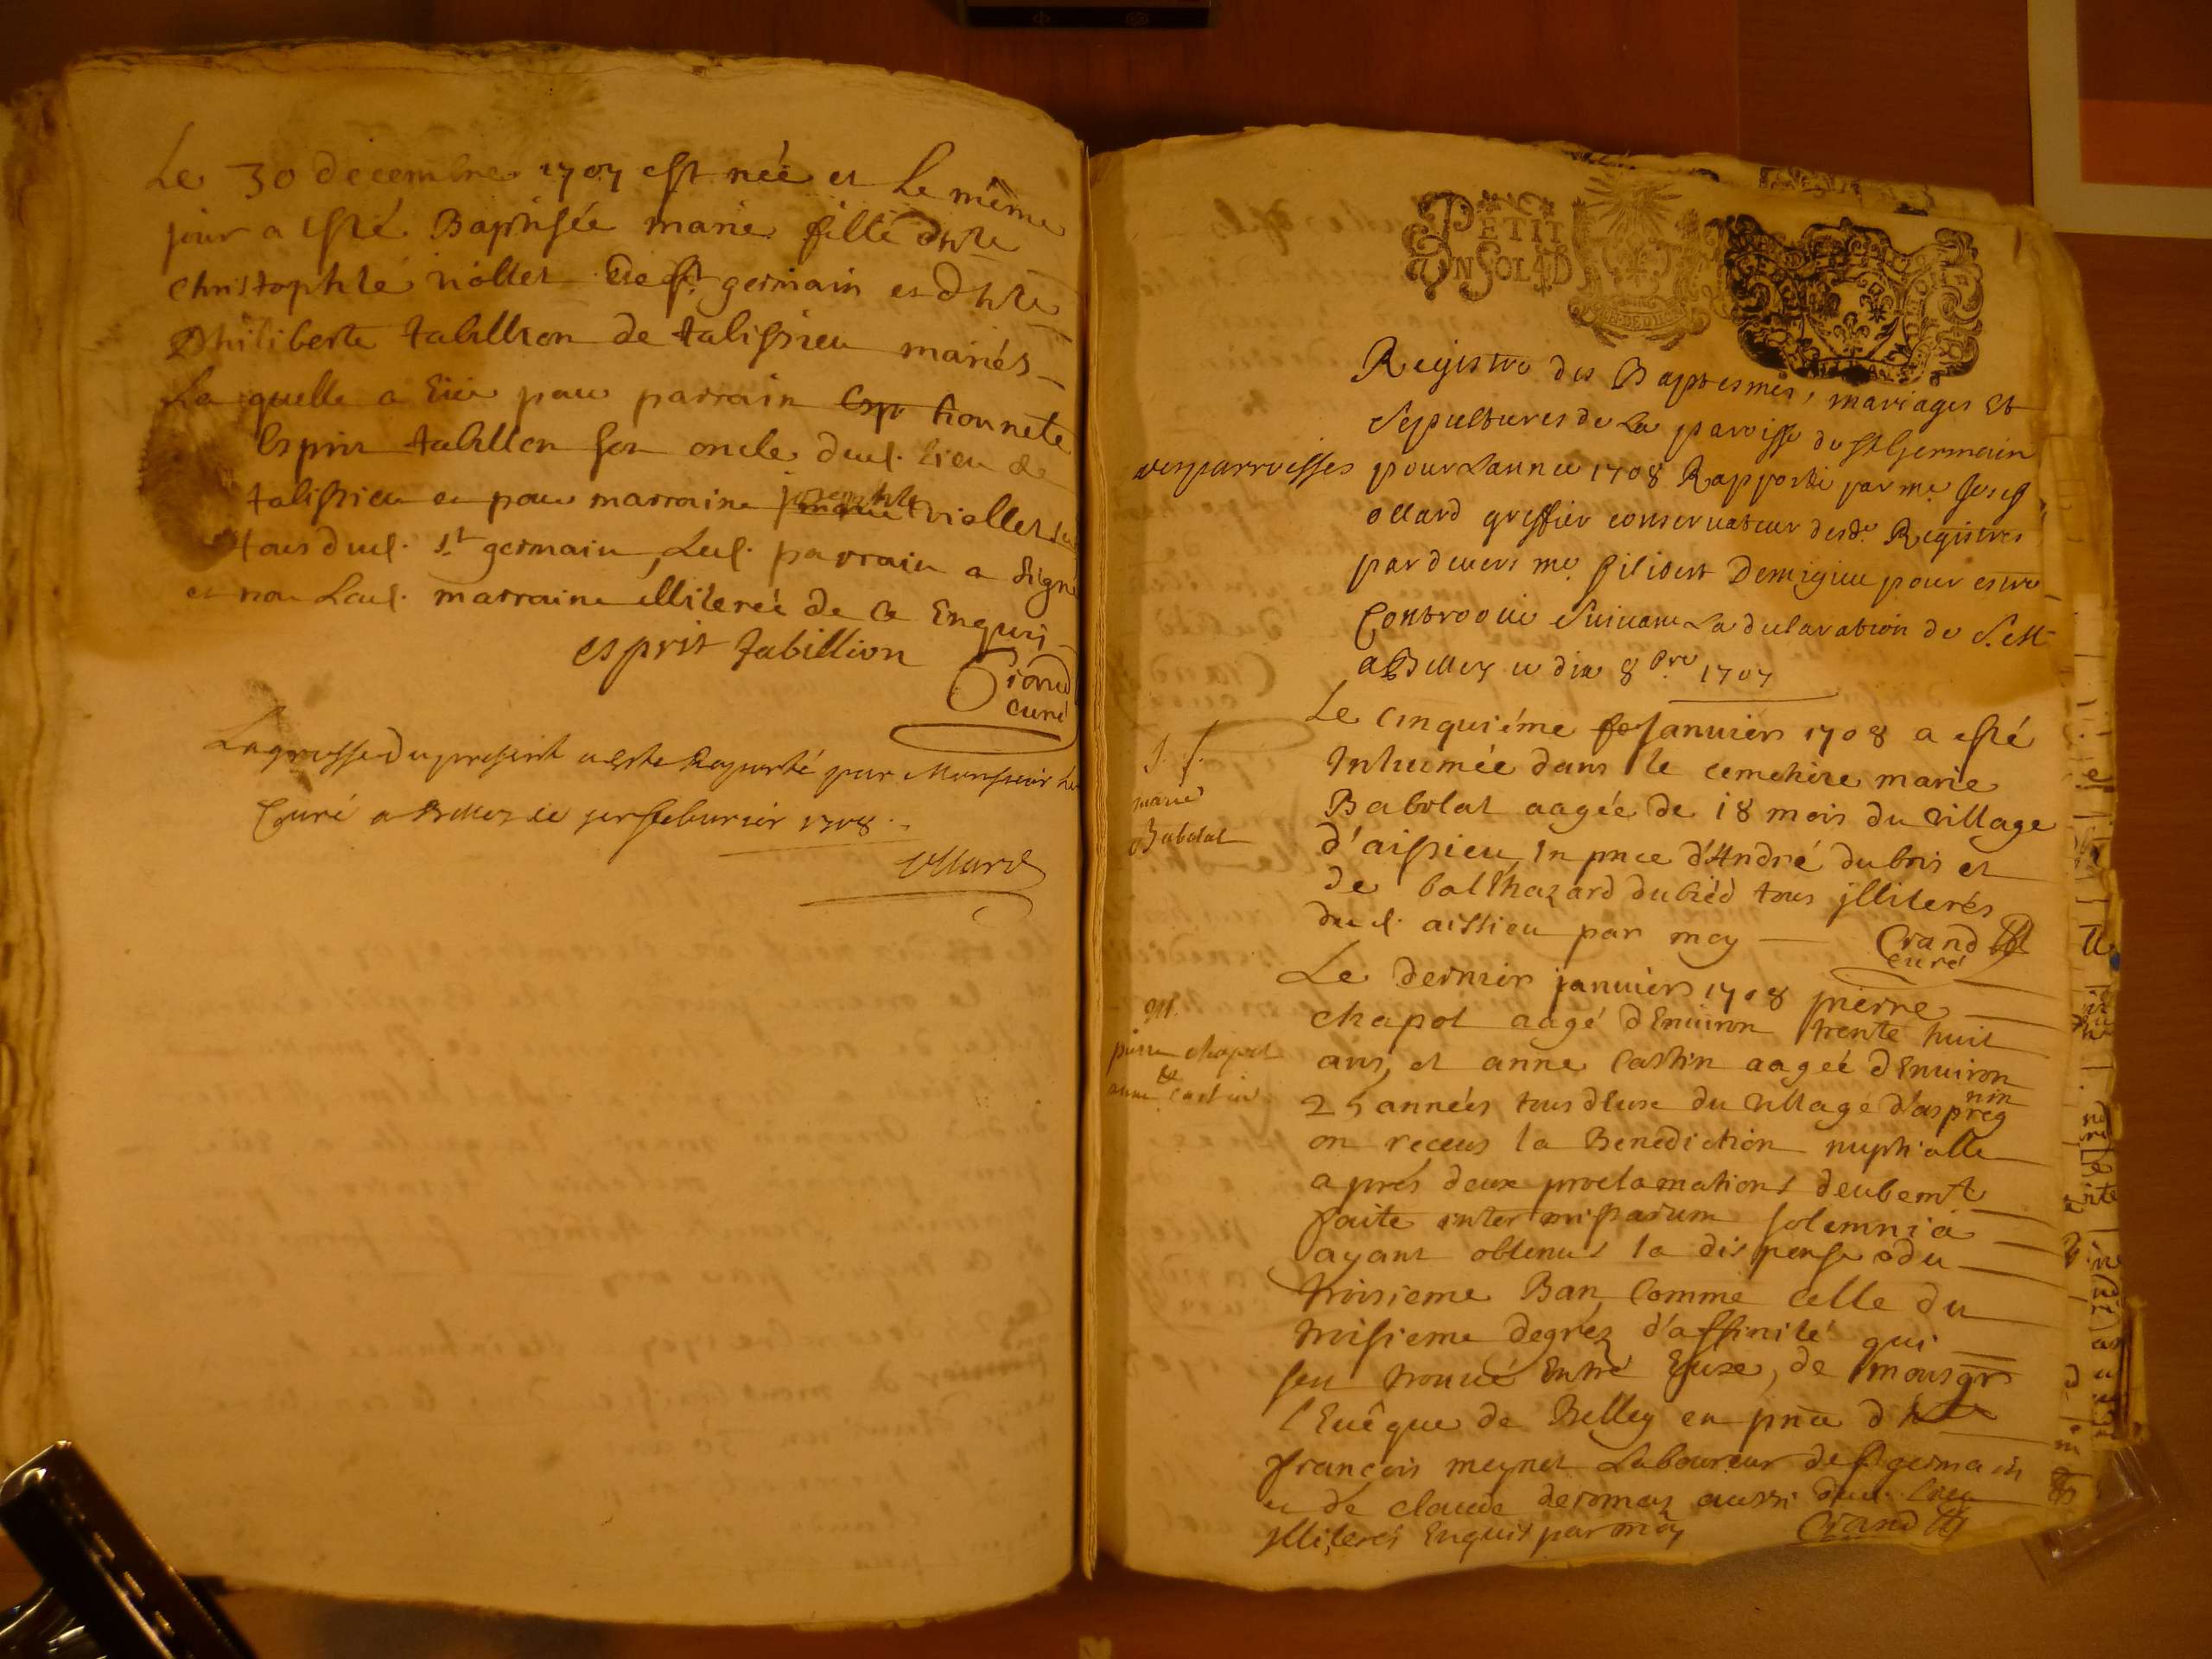 Le 30 decembre 1707 est née et le même
jour a esté Baptisée marie fille d'hte
christophle viollet de st germain et d'hte
Philiberte tabillion de talissieu mariés
La quelle a eüe pour parrain hounete
Esprit tabillon son oncle dud. lieu de
talissieu et pour marraine josephte viollet
tous dud. st germain, led. parrain a signé
et non lad. marraine illiterée de ce Enquis
esprit tabillion
Grand
curé
La grosse du present a este Raporté par Monsieur le
Curé a Belley ce febvrier 1708.
Ollard
PETIT
UN SOL 4 D
Registre des Baptesmes, mariages Et
Sepultures de La paroisse de St Germain
les parroisses pour Lannée 1708 Rapporté par me Josef
ollard greffier conservateur desd. Registres
pardevers me filibert Demigieu pour estre
suivant La declaration de S. M
a Belley ce dix 8bre 1707
Le cinquiéme Janvier 1708 a esté
Inhumée dans le cemetiere marie
Babolat aagée de 18 mois du village
d'aissieu, In pnce d'André dubois et
de balthazard dubied tous illiterés
dud. aissieu par moy Grand
curé
S.
marie
Babolat
Le dernier janvier 1708 pierre
chapot aagé d'Environ trente huit
ans, et anne Castin aageé d'Environ
25 années tous deux du village d'asprenin
on receus la Benediction nuptialle
aprés deux proclamations deubemt
faite inter missarum solemnia
ayant obtenus la dispense du
troisieme Ban, Comme celle du
troisieme degréz d'affinité qui
sen trouué Entre Euxe, de monsgr
l'Euêque de Belley en pnce d'hte
françois meynet Laboureur de St germain
et de claude deromas aussi dud. lieu
illiterés Enquis par moy Grand
M.
pierre chapot
et
anne Castin